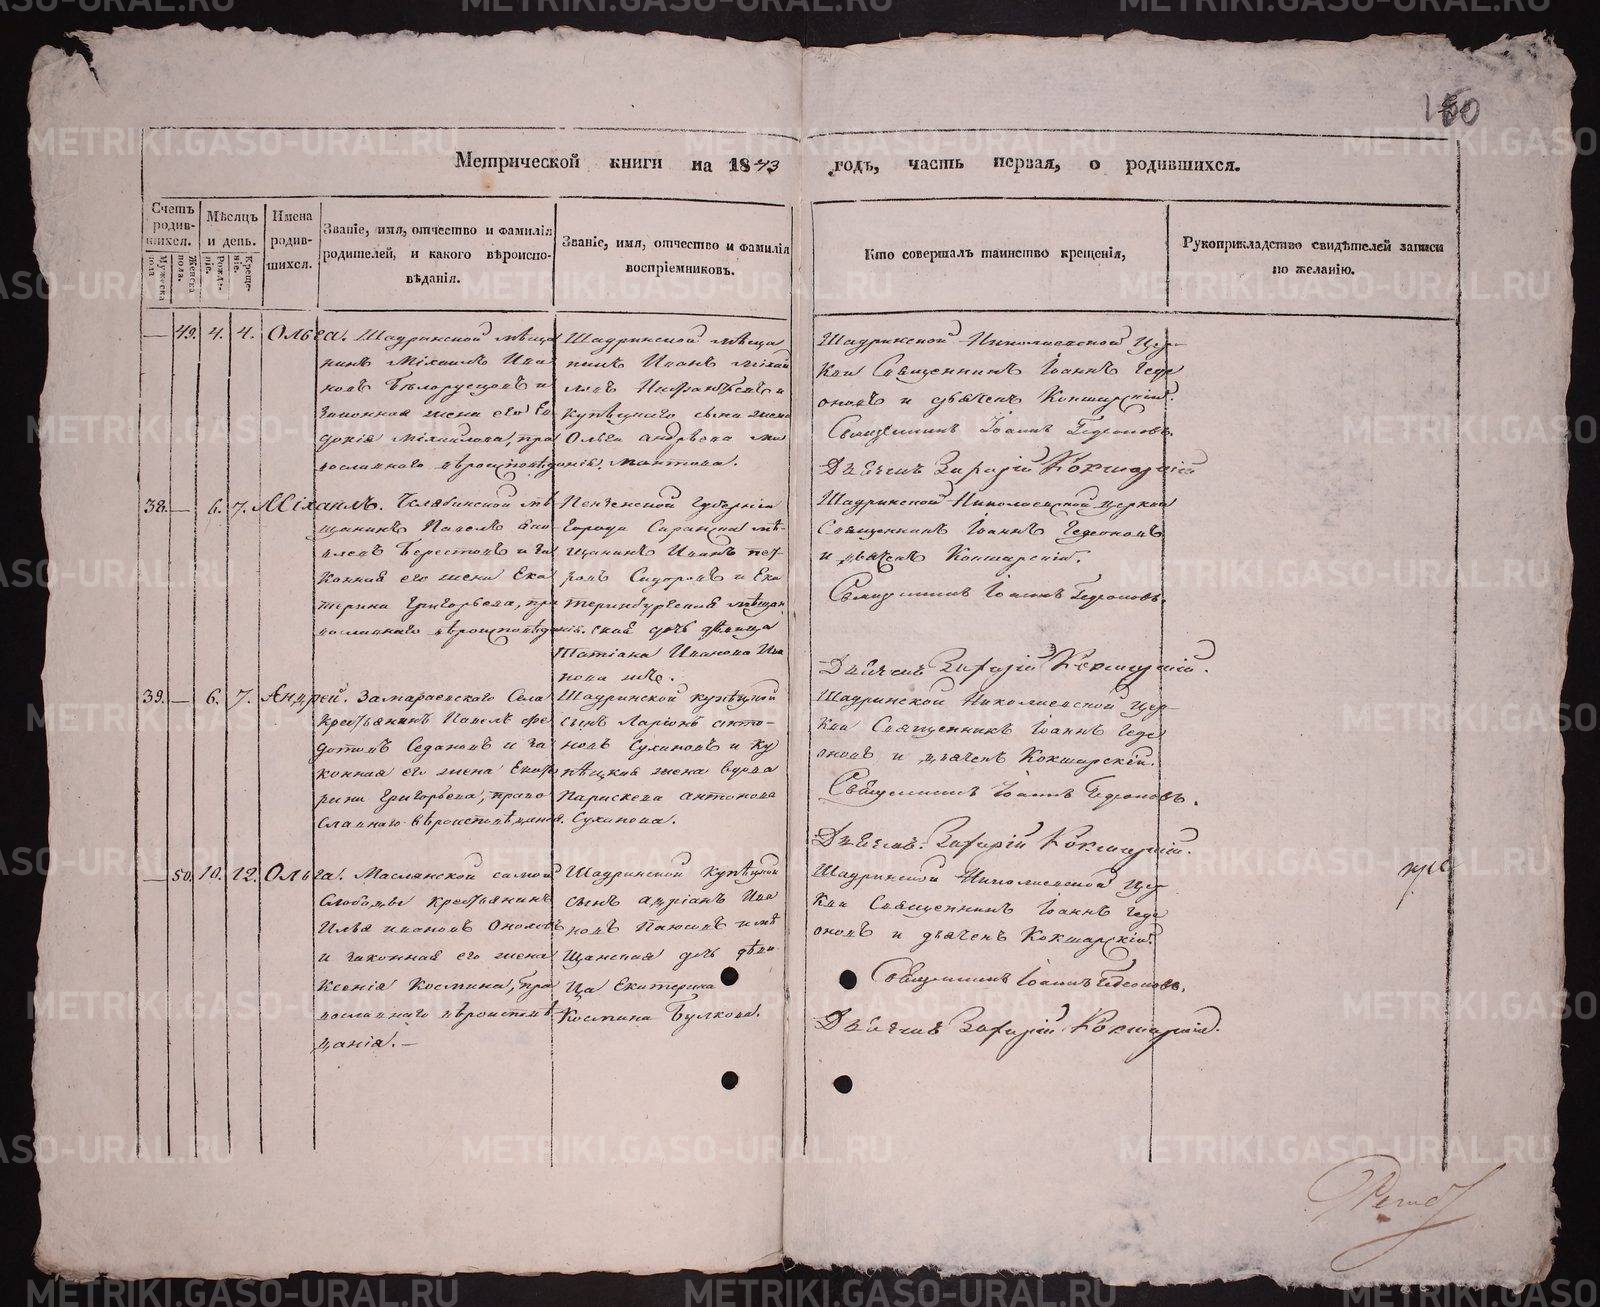 180
Метрической книги на 1843 годъ, часть первая, о родившихся.
Счетъ родившихся.
Мужеска пола
Женска пола.
Мѣсяцъ и день.
Рожденіе.
Крещеніе.
Имена родившихся.
Званіе, имя, отчество и фамилія родителей, и какого вѣроисповѣданія.
Званіе, имя, отчество и фамилія воспріемниковъ.
Кто совершалъ таинство крещенія,
Рукоприкладство свидѣтелей записи по желанію.
— 49. 4. 4. Ольга.
Шадринской мѣща
нинъ Михаилъ Ива
новъ Бѣлорусцовъ и
законная жена его Ев
докія Михаилова, пра
вославнаго вѣроисповѣданія.
Шадринской мѣща
нинъ Иванъ Михай
ловъ и
купѣцкаго сына жена
Ольга Андрѣева Ма
мантова.
Шадринской Николаевской Цер-
кви Священникъ Іоаннъ Геде
оновъ и дьяченъ Кокшарскій.
Священникъ Іоаннъ Гедеоновъ.
Дьяченъ Захарій Кокшарскій
38. — 6. 7. Михаилъ.
Челябинской мѣ
щанинъ Павелъ Яко
влевъ Берестовъ и за
конная его жена Ека
терина Григорьева, пра
вославнаго вѣроисповѣданія.
Пензенской Губерніи
города Саранска мѣ-
щанинъ Иванъ Пет
ровъ Сидоровъ и Ека
теринбургская мѣщан
ская дочь дѣвица
Татіана Иванова Ива
нова же.
Шадринской Николаевской церкви
Священникъ Іоаннъ Гедеоновъ
и дьяченъ Кокшарскій.
Священникъ Іоаннъ Гедеоновъ.
Дьяченъ Захарій Кокшарскій.
39. — 6. 7. Андрей.
Замараевскаго Села
крестьянинъ Павелъ Фе
дотовъ Седановъ и за
конная его жена Екате
рина Григорьева, право
славнаго вѣроисповѣданія.
Шадринской купѣцкой
сынъ Ларіонъ Анто-
новъ Сухановъ и ку
пѣцкая жена вдова
Параскева Антонова
Суханова.
Шадринской Николаевской Цер-
кви Священникъ Іоаннъ Геде
оновъ и дьяченъ Кокшарскій.
Священникъ Іоаннъ Гедеоновъ.
Дьяченъ Захарій Кокшарскій.
— 50. 10. 12. Ольга.
Маслянской самой
Слободы крестьянинъ
Илья Ивановъ
и законная его жена
Ксенія Космина, пра
вославнаго вѣроисповѣ
данія. —
Шадринской купѣцкой
сынъ Андріанъ Ива
новъ и мѣ
щанская дочь дѣви
ца Екатерина
Космина Булкова.
Шадринской Николаевской Цер
кви Священникъ Іоаннъ Геде
оновъ и дьяченъ Кокшарскій.
Священникъ Іоаннъ Гедеоновъ.
Дьяченъ Захарій Кокшарскій.
METRIKI.GASO-URAL.RU